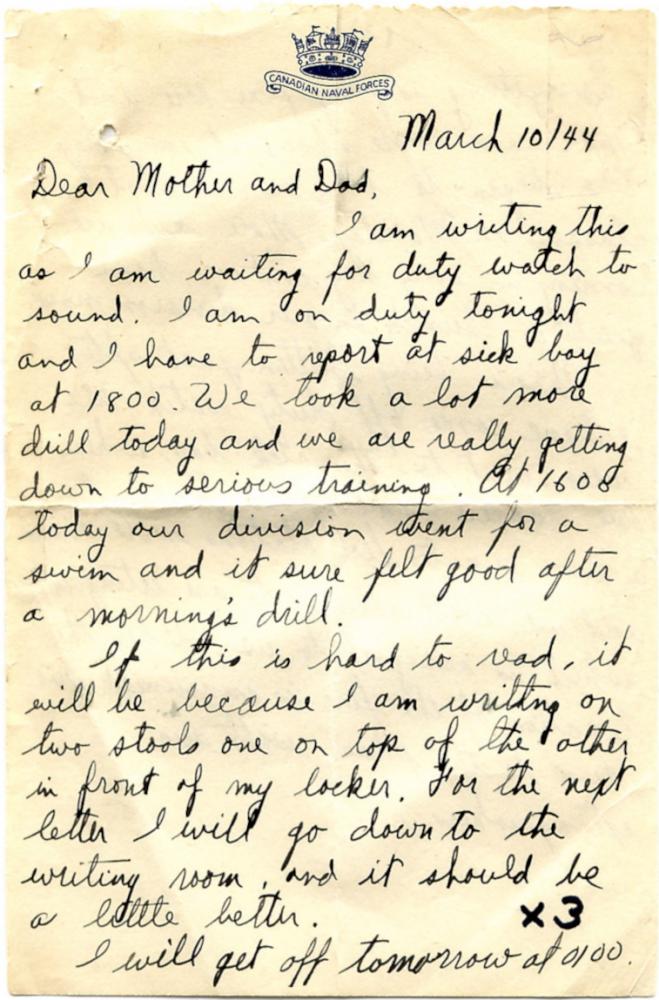 CANADIAN NAVAL FORCES
March 10/44
Dear Mother and Dad,
I am writing this
as I am waiting for duty watch to
sound. I am on duty tonight
and I have to report at sick bay
at 1800. We took a lot more
drill today and we are really getting
down to serious training. At 1600
today our division went for a
swim and it sure felt good after
a morning's drill.
If this is hard to read, it
will be because I am writing on
two stools one on top of the other
in front of my locker. For the next
letter I will go down to the
writing room, and it should be
a little better.
x3
I will get off tomorrow at 0100.